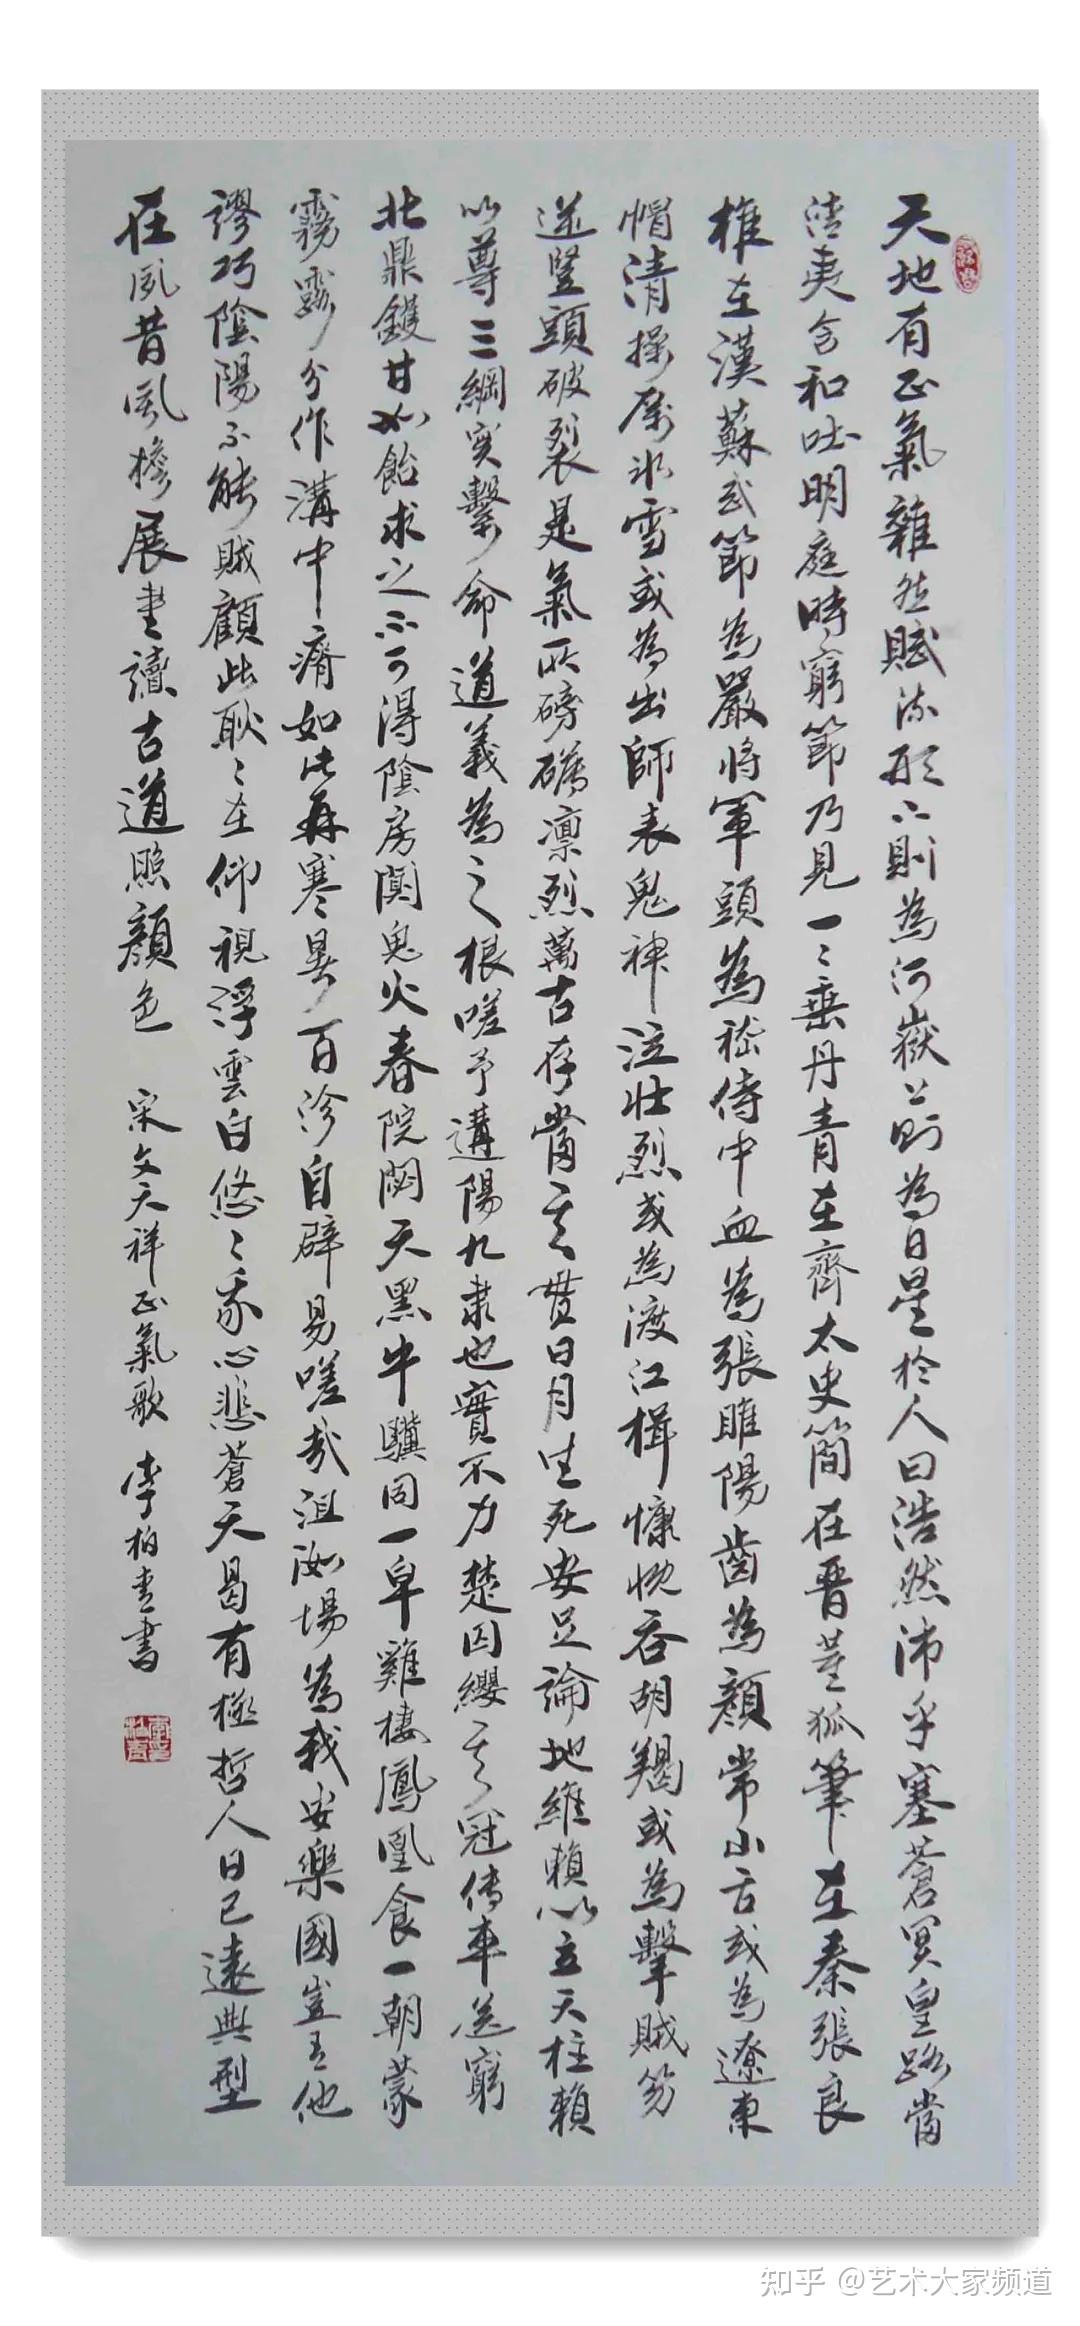 天地有正氣雜然賦流形下則為河嶽上則為日星於人曰浩然沛乎塞蒼冥皇路當
清夷含和吐明庭時窮節乃見一々垂丹青在齊太史簡在晉董狐筆在秦張良
椎在漢蘇武節為嚴將軍頭為嵇侍中血為張睢陽齒為顏常山舌或為遼東
帽清操厲冰雪或為出師表鬼神泣壯烈或為渡江楫慷慨吞胡羯或為擊賊笏
逆豎頭破裂是氣所磅礴凜烈萬古存當其貫日月生死安足論地維賴以立天柱賴
以尊三綱實繫命道義為之根嗟予遘陽九隸也實不力楚囚纓其冠傳車送窮
北鼎鑊甘如飴求之不可得陰房闃鬼火春院閟天黑牛驥同一皁雞棲鳳凰食一朝蒙
霧露分作溝中瘠如此再寒暑百沴自辟易嗟哉沮洳場為我安樂國豈有他
謬巧陰陽不能賊顧此耿々在仰視浮雲白悠々我心悲蒼天曷有極哲人日已遠典型
在夙昔風檐展書讀古道照顏色 宋文天祥正氣歌 李柏青書
知乎 @艺术大家频道